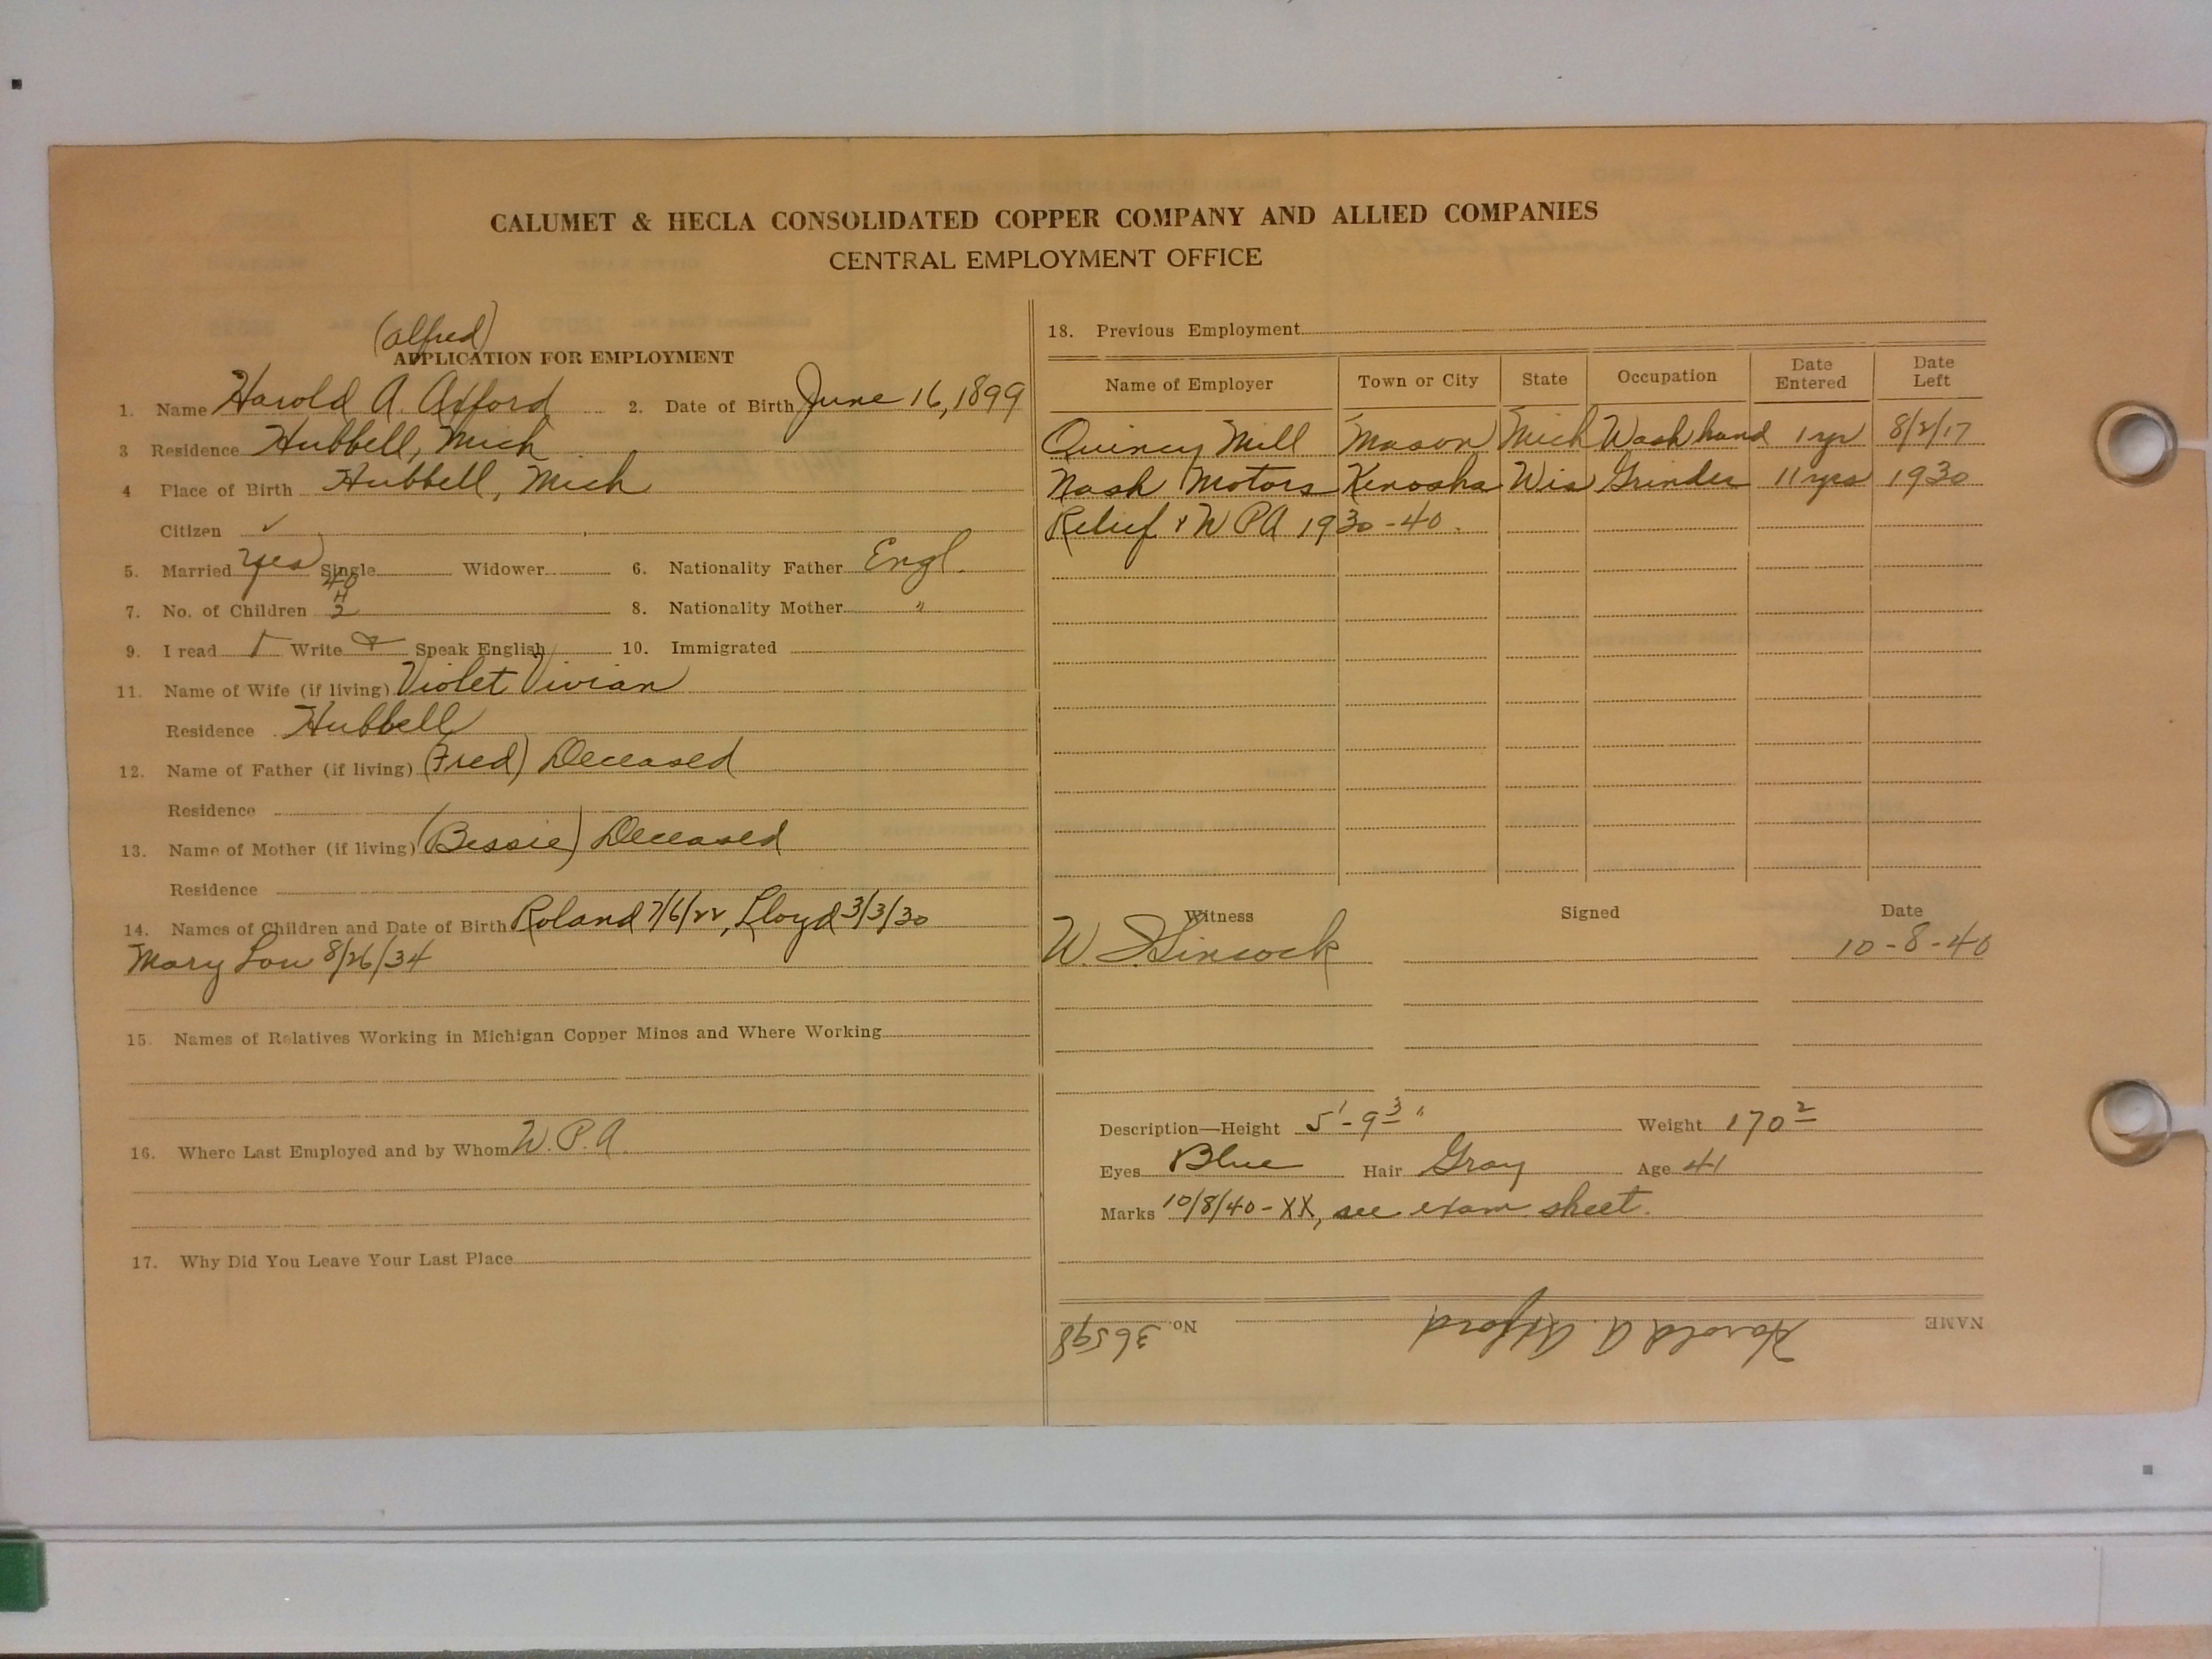 CALUMET & HECLA CONSOLIDATED COPPER COMPANY AND ALLIED COMPANIES
CENTRAL EMPLOYMENT OFFICE
(Alfred)
APPLICATION FOR EMPLOYMENT
1. Name Harold A. Axford 2. Date of Birth June 16, 1899
3 Residence Hubbell, Mich
4 Place of Birth Hubbell, Mich
Citizen ✓
5. Married Yes Single Widower 6. Nationality Father Engl.
40
7. No. of Children 3 8. Nationality Mother "
9. I read Write Speak English 10. Immigrated
11. Name of Wife (if living) Violet Vivian
Residence Hubbell
12. Name of Father (if living) (Fred) Deceased
Residence
13. Name of Mother (if living) (Bessie) Deceased
Residence
14. Names of Children and Date of Birth Roland 7/6/22, Lloyd 3/3/30
Mary Lou 8/26/34
15. Names of Relatives Working in Michigan Copper Mines and Where Working
16. Where Last Employed and by Whom W.P.A.
17. Why Did You Leave Your Last Place
18. Previous Employment
Name of Employer Town or City State Occupation Date Entered Date Left
Quincy Mill Mason Mich Wash hand 1 yr 8/2/17
Nash Motors Kenosha Wis Grinder 11 yrs 1930
Relief & WPA 1930-40.
Witness Signed Date
W. 10-8-40
Description—Height 5'-9 3" Weight 170 2
Eyes Blue Hair Gray Age 41
Marks 10/8/40-XX, see exam. sheet.
NAME Harold A. Axford No. 36598